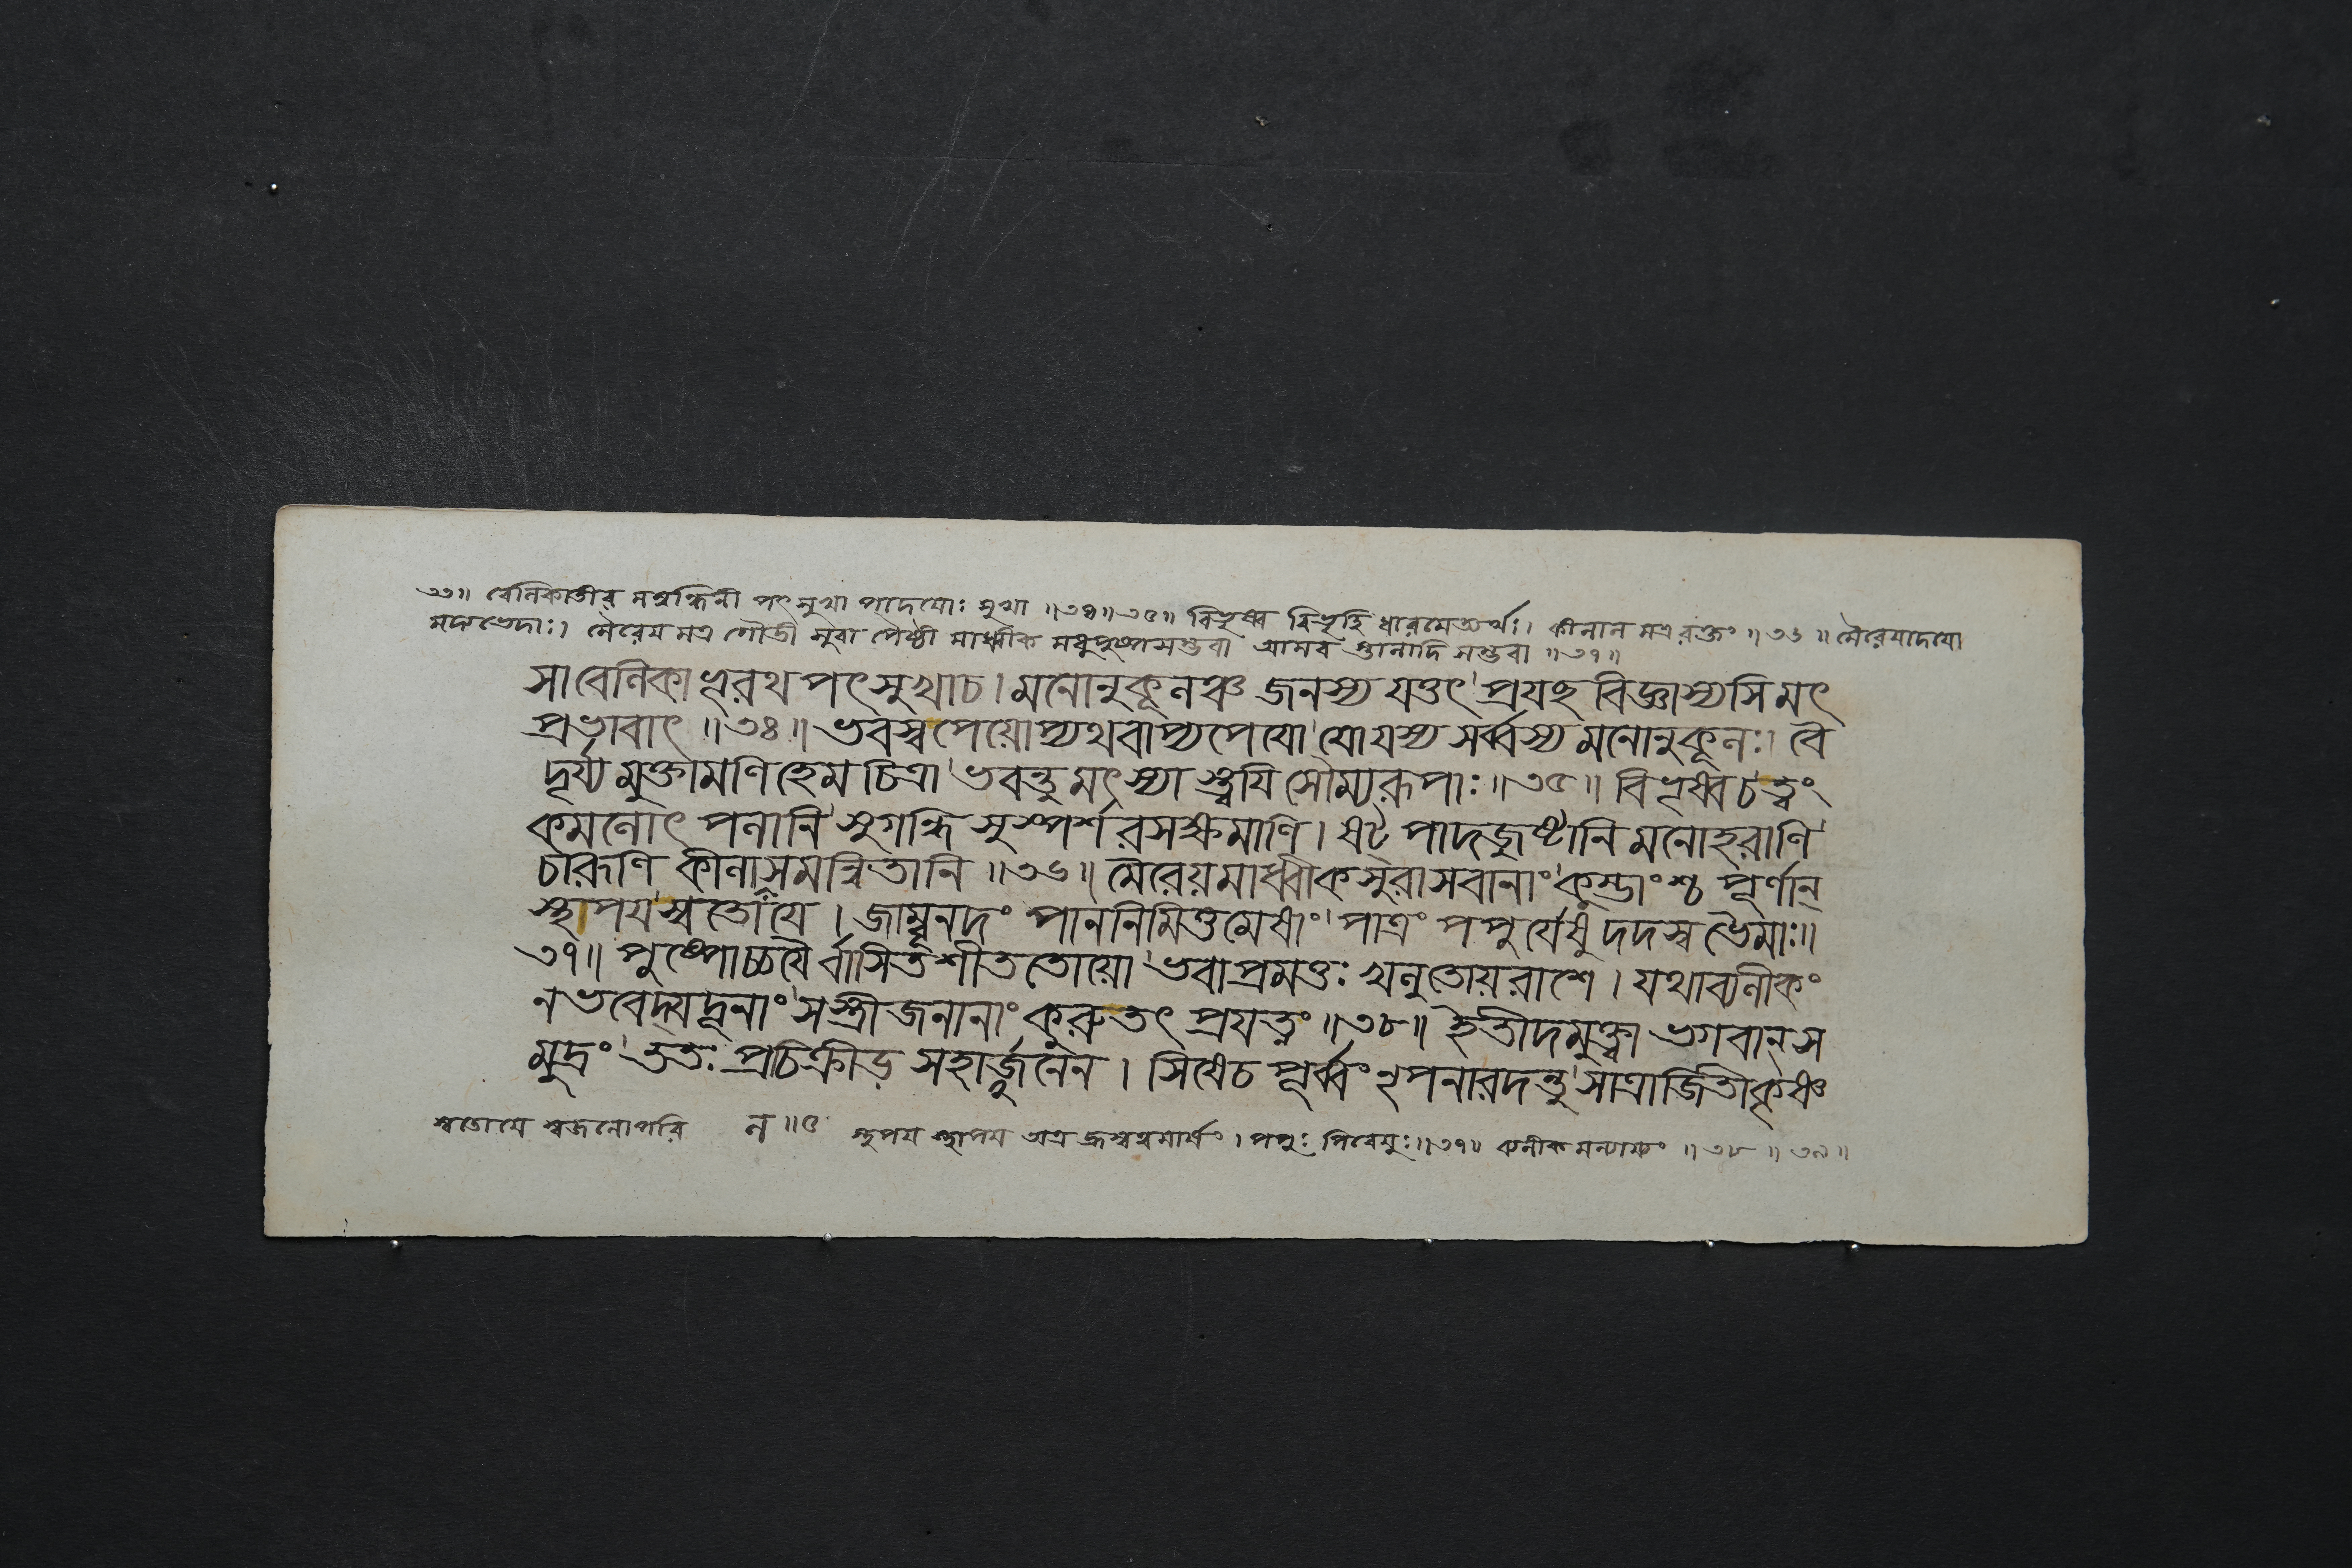 ৩৩॥ বেলিকাতীর মনুন্ধিনী পৎসুখা পাদয়োঃ সুখা ॥৩৪॥৩৫॥ বিভৃষ্ব বিভৃহি ধারয়েত্যর্থঃ। কীলাল মত্র রক্তং ॥৩৬॥ মৈরেয়াদয়ো
মদ্যভেদাঃ। মৈরেয় মত্র গৌডী সুরা পৈষ্ঠী মাধ্বীক মধুপুষ্পসম্ভবা আসব স্তালাদি সম্ভবা ॥৩৭॥
সাবেলিকা ভূরথ পৎসুখাচ। মনোনুকূলঞ্চ জনস্য যত্তৎ প্রযচ্ছ বিজ্ঞাস্যসি মৎ
প্রভাবাৎ ॥৩৪॥ ভবস্ব পেয়োপ্যথবাপ্যপেয়ো যোযস্য সর্ব্বস্য মনোনুকূলঃ। বৈ
দূর্য্য মুক্তামণি হেম চিত্রা ভবন্তু মৎস্যা স্ত্বয়ি সৌম্যরূপাঃ ॥৩৫॥ বিভৃষ্ব চ ত্বং
কমলোৎপলানি সুগন্ধি সুস্পর্শ রসক্ষমাণি। ষট্পাদজুষ্টানি মনোহরাণি
চারূণি কীলালসমন্বিতানি ॥৩৬॥ মৈরেয়মাধ্বীকসুরাসবানাং কুম্ভাংশ্চ পূর্ণান্
স্থাপয স্বতোয়ে। জাম্বূনদং পাননিমিত্তমেষাং পাত্রং পপুর্যেষু দদস্ব ভৈমাঃ॥
৩৭॥ পুষ্পোচ্চয়ৈর্বাসিত শীততোয়ো ভবাপ্রমত্তঃ খলু তোয়রাশে। যথাব্যলীকং
ন ভবেদ্যদূনাং সস্ত্রীজনানাং কুরু তৎ প্রযত্নং ॥৩৮॥ ইতীদমুক্ত্বা ভগবান্ স
মুদ্রং ততঃ প্রচিক্রীড় সহার্জ্জুনেন। সিষেচ পূর্ব্বং নৃপ নারদন্তু সাত্রাজিতী কৃষ্ণ
স্বতোয়ে স্বজলোপরি ল॥৫ স্থপয স্থাপয অত্র হ্রস্বত্বমার্ষং। পপুঃ পিবেয়ুঃ॥৩৭॥ ব্যলীক মন্যায্যং ॥৩৮॥৩৯॥